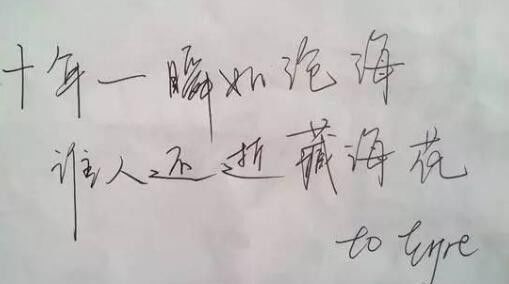 十年一瞬如沧海
谁人还折藏海花
to Eyre